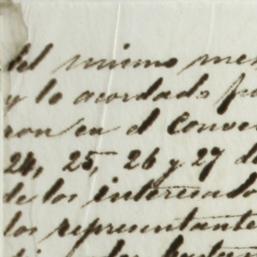 del mismo mes
y lo acordado po
ron en el Conve
24, 25, 26 y 27 d
de los interesado
los representante